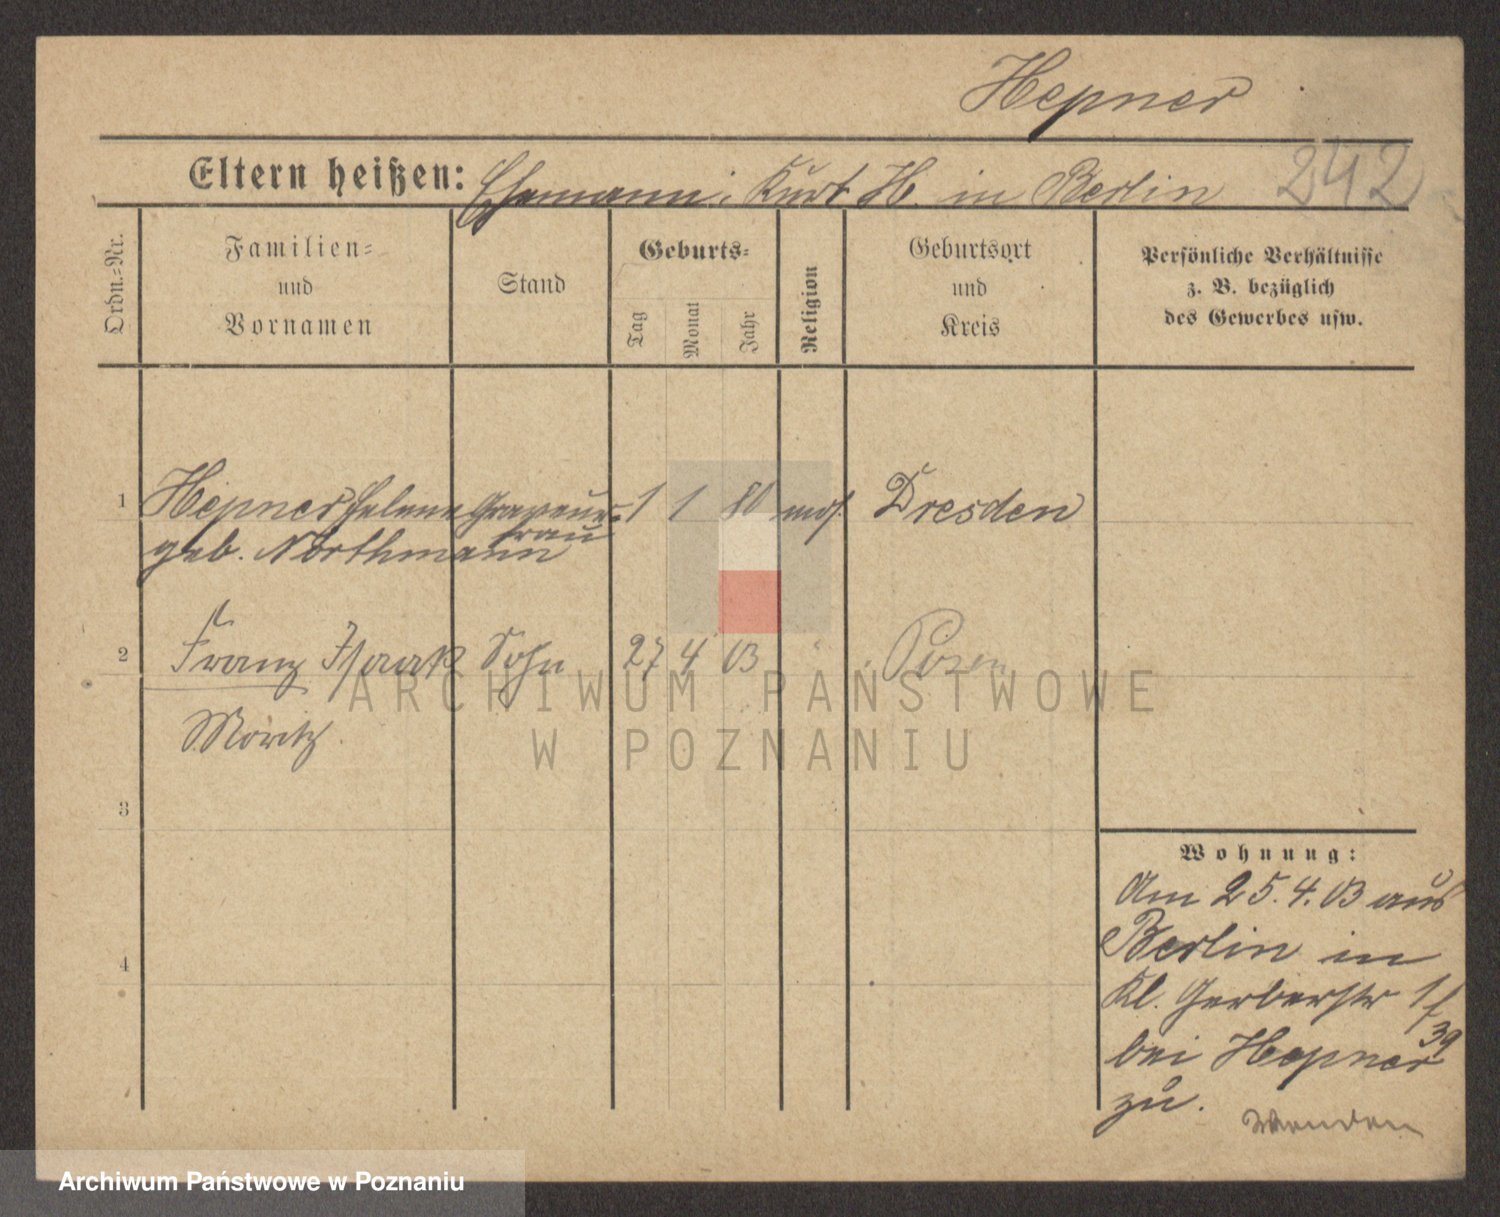 Hepner
242
Eltern heißen: Ehemann: Kurt H. in Berlin
Ordn.=Nr.
Familien=
und
Vornamen
Stand
Geburts=
Tag
Monat
Jahr
Religion
Geburtsort
und
Kreis
Persönliche Verhältnisse
z. B. bezüglich
des Gewerbes usw.
1 Hepner Helene Graveur- 1 1 80 mos. Dresden
frau
geb. Northmann
2 Franz Isaak Sohn 27 4 03 " Posen
Moritz
3
4
Wohnung:
Am 25.4.03 aus
Berlin in
Kl. Gerberstr
bei Hepner
zu.
Wenden
ARCHIWUM PAŃSTWOWE
W POZNANIU
Archiwum Państwowe w Poznaniu